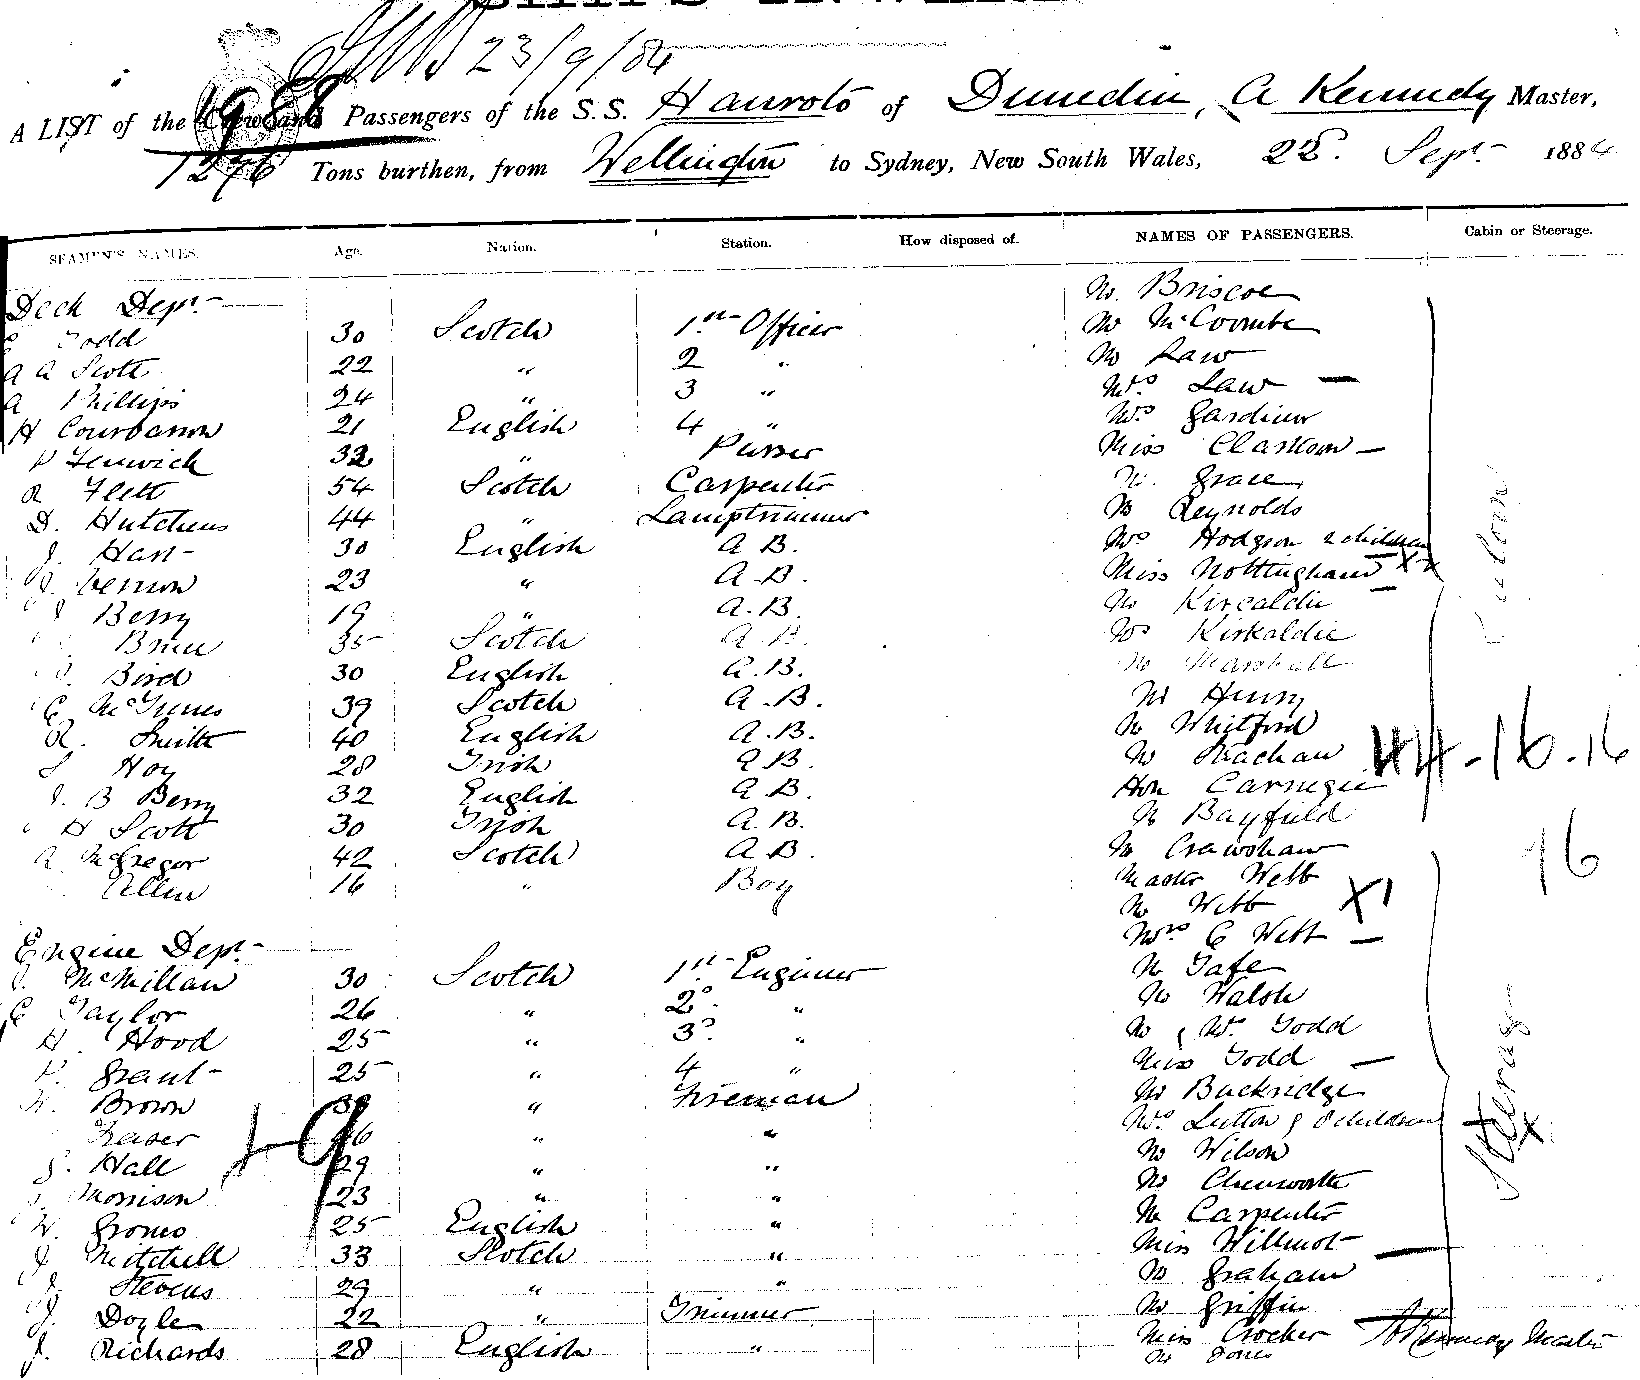 23/9/84
A LIST of the Crew and Passengers of the S.S. Hauroto of Dunedin, A Kennedy Master,
1276 Tons burthen, from Wellington to Sydney, New South Wales, 22. Sept 1884
SEAMEN'S NAMES. Age. Nation. Station. How disposed of. NAMES OF PASSENGERS. Cabin or Steerage.
Deck Dept Mr. Briscoe
Todd 30 Scotch 1st Officer Mr McCoombe
A A Scott 22 " 2 " Mr Law
A Phillips 24 " 3 " Mrs Law —
H 21 English 4 " Mrs Gardiner
Fenwick 32 " Purser Miss Clarkson —
R Flett 54 Scotch Carpenter Mr. Grace
D. Hutchens 44 " Lamptrimmer Mr Reynolds
J. Hart 30 English A B. Mrs Hodgson 2 children
J. Vernon 23 " A.B. Miss Nottingham
J Berry 19 " A.B. Mr Kircaldie
35 Scotch A.B. Mrs Kirkaldie
J. Bird 30 English A.B. Mr Marshall
C McInnes 39 Scotch A.B. Mr Henry
R. Smith 40 English A.B. Mr Whitford
Hoy 28 Irish A B. Mr Strachan
J. B Berry 32 English A B. Hon Carnegie
H Scott 30 Irish A.B. Mr Bayfield
A McGregor 42 Scotch A B. Mr Crawshaw
Allen 16 " Boy Master Webb
Mr Webb
Mrs C Webb —
Saloon
44-16.16
16
X1
Engine Dept
J. McMillan 30 Scotch 1st Engineer Mr Tafe
C Taylor 26 " 2 " Mr Walsh
H. Hood 25 " 3 " Mr W. Todd
P. Grant 25 " 4 " Miss Todd —
Brown 30 " Fireman Mr Buckridge
Fraser 26 " " Mrs Lutton & 8 children
Hall 29 " " Mr Wilson
Morrison 23 " " Mr Chenworth
W. 25 English " Mr Carpenter
J Mitchell 33 Scotch " Miss Willmot —
J. Stevens 29 " " Mr Graham
J. Doyle 22 " Trimmer Mr Griffin
J. Richards 28 English " Miss Crocker
Mr Jones
Steerage
A Kennedy Master